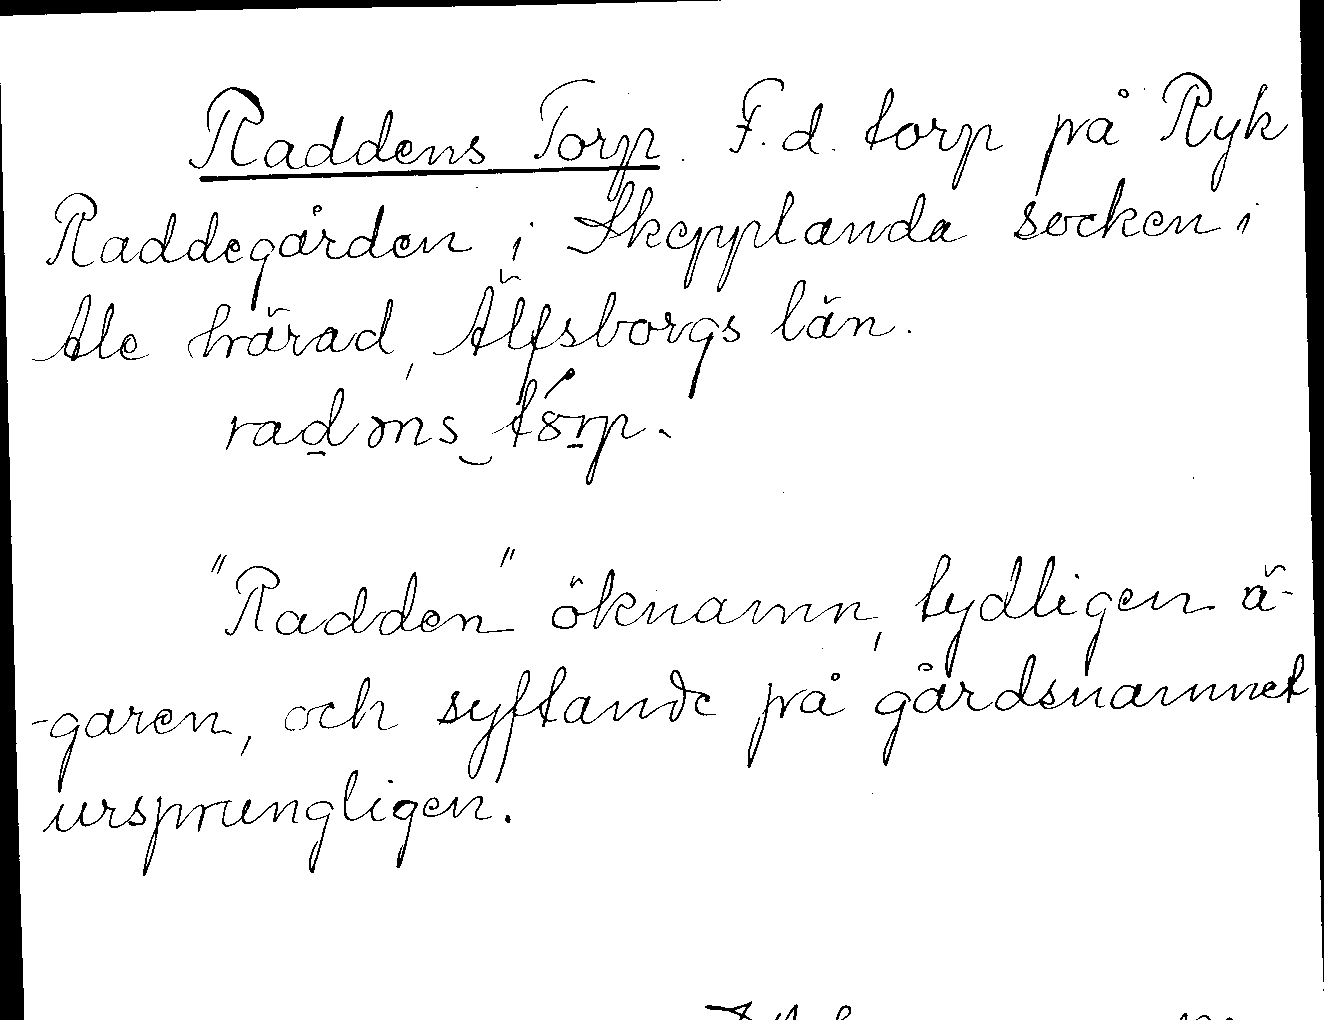 Raddens Torp. F.d. torp på Ryk
Raddegården i Skepplanda socken i
Ale härad, Älfsborgs län.
"Radden" öknamn, tydligen ä-
-garen, och syftande på gårdsnamnet
ursprungligen.